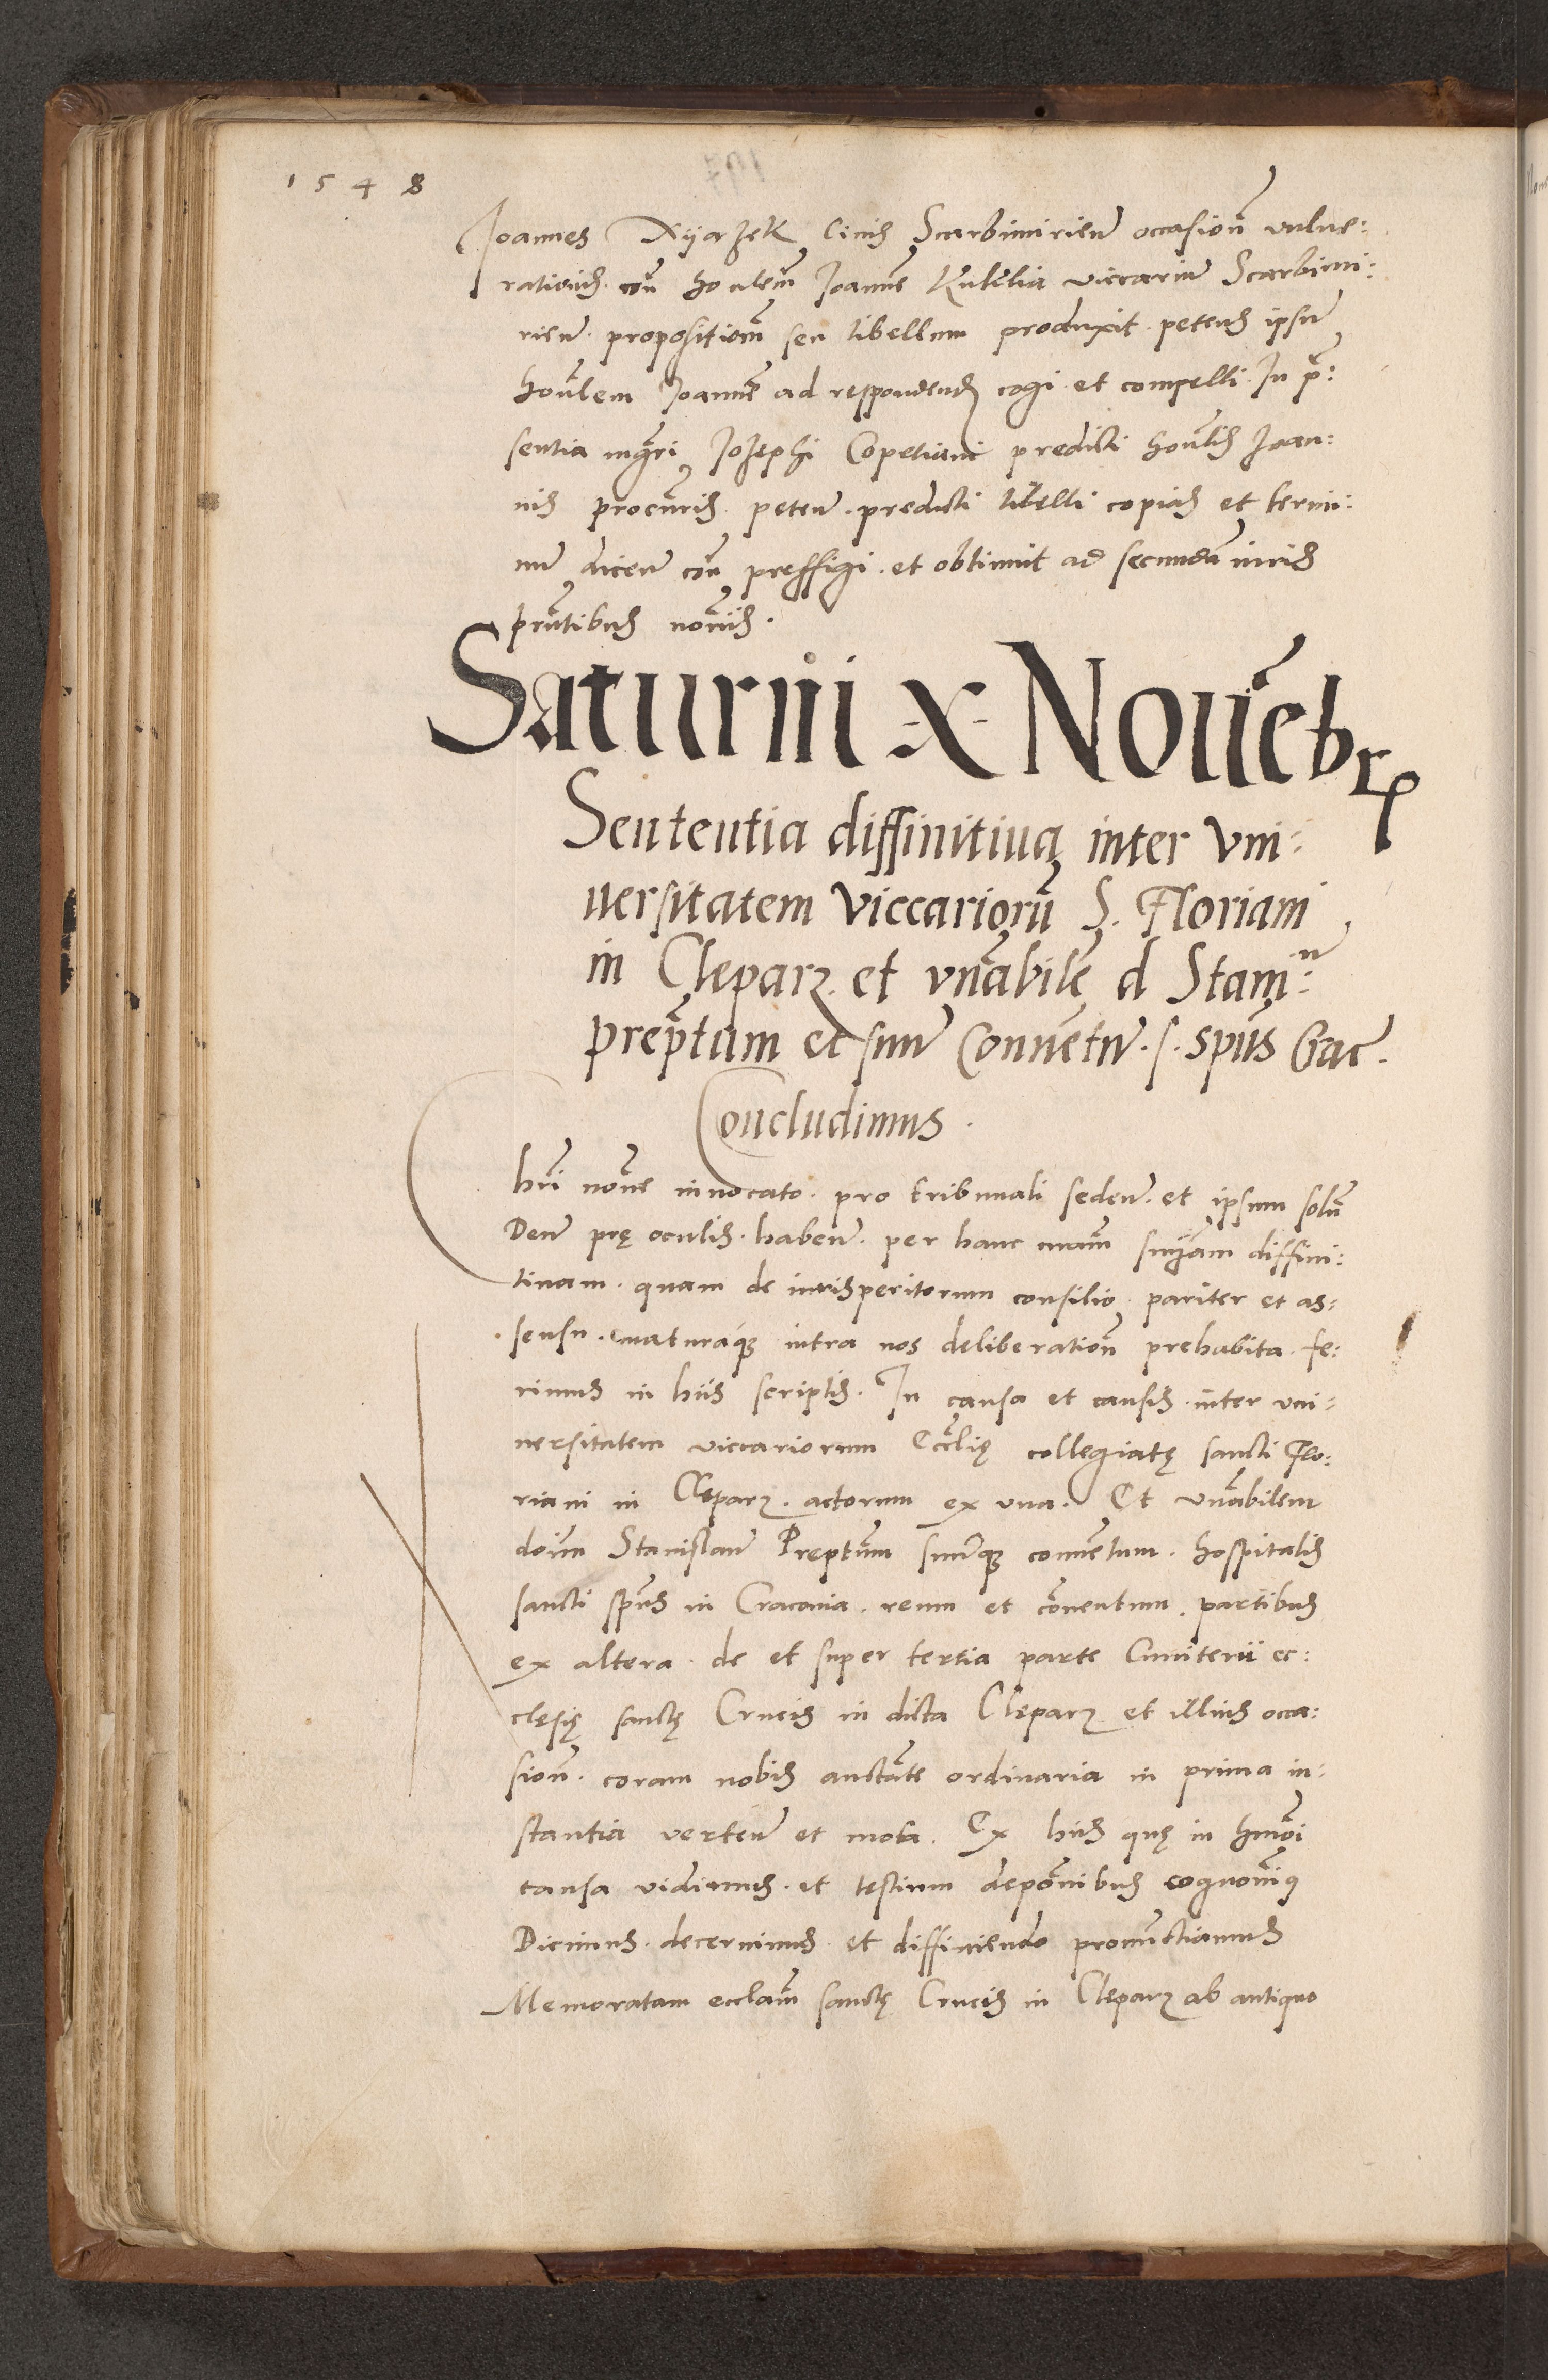 1548
Joannes Xyązek Civis Scarbimirieñ occasioñ vulne:
rationis coñ honlem̃ Joanne Kulelia viccariũ Scarbimi:
rieñ. propositioem̃ seu libellum produxit. petens ipsũ
hon̄lem Joannē ad respondend cogi et compelli. In p̃:
sentia mgr̃i Josephi Copetiani predicti hon̄lis Joan:
nis procur̃is peteñ. predicti libelli copias et termi:
nũ diceñ coñ preffigi. et obtinuit ad secundã iuris
pñtibus nom̃iis.
Saturni X Nouẽbr
Sententia diffinitiua inter vni:
uersitatem Viccariorũ S. Floriani
in Clepar et vñabilẽ d Stani:
prep̃tum et suũ Conuẽtũ. s. spũs Crac.
Concludimus.
hr̃i noĩe inuocato. pro tribunali sedeñ. et ipsum solũ
Deũ prę oculis. habeñ. per hanc nr̃am sniam diffini:
tiuam. quam de iurisperitorum consilio pariter et as:
sensu. maturaque intra nos deliberatioñ prehabita. fe:
rimus in hiis scriptis. In causa et causis inter vni:
uersitatem viccariorum Eccl̃ię collegiatę sancti Flo:
riani in Clepar. actorum ex vna. Et vñabilem
doĩm Stanislaũ Prep̃tum suũque conuentum. hospitalis
sancti sp̃us in Cracouia. reum et cõuentum. partibus
ex altera. de et super tertia parte Cimiterii ec:
clesię sanctę Crucis in dicta Clepar et illius occa:
sioñ. coram nobis auctãte ordinaria in prima in:
stantia verteñ et mota. Ex hiis quę in hmõi
causa vidimus. et testium depõnibus cognouimus
Dicimus. decernimus. et diffiniendo pronunctiamus
Memoratam eccl̃am sanctę Crucis in Clepar ab antiquo